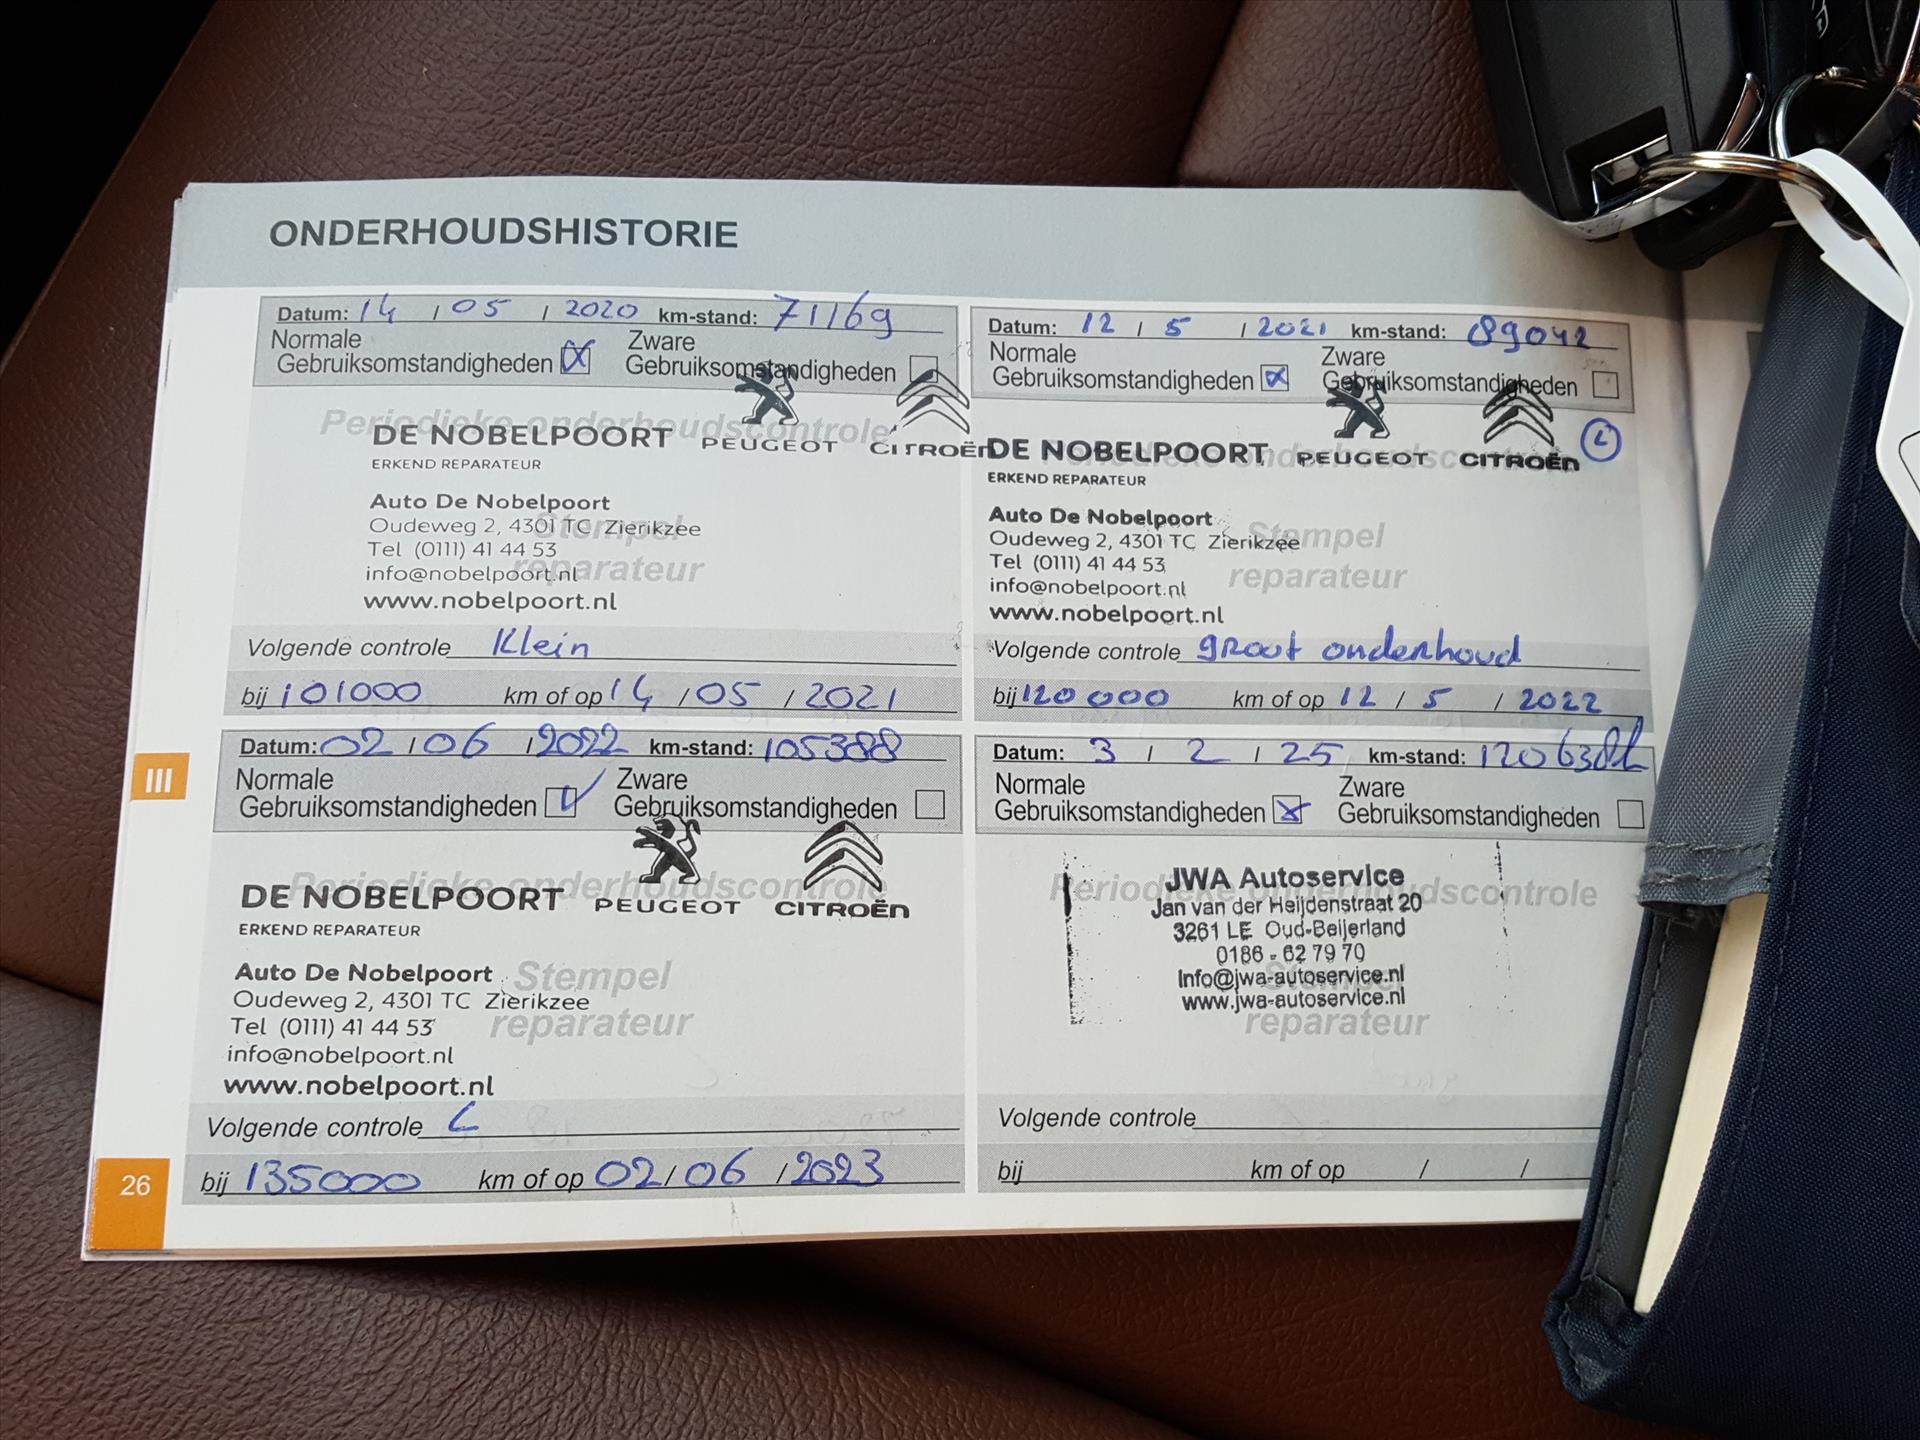 ONDERHOUDSHISTORIE
Datum: 14 / 05 / 2020 km-stand: 71169
Normale Zware
Gebruiksomstandigheden Gebruiksomstandigheden
Periodieke onderhoudscontrole
DE NOBELPOORT PEUGEOT CITROËN
ERKEND REPARATEUR
Auto De Nobelpoort
Oudeweg 2, 4301 TC Zierikzee
Tel (0111) 41 44 53
info@nobelpoort.nl
www.nobelpoort.nl
Stempel
reparateur
Volgende controle Klein
bij 101000 km of op 14 / 05 / 2021
Datum: 12 / 5 / 2021 km-stand: 89042
Normale Zware
Gebruiksomstandigheden Gebruiksomstandigheden
Periodieke onderhoudscontrole
DE NOBELPOORT PEUGEOT CITROËN
ERKEND REPARATEUR
Auto De Nobelpoort
Oudeweg 2, 4301 TC Zierikzee
Tel (0111) 41 44 53
info@nobelpoort.nl
www.nobelpoort.nl
Stempel
reparateur
Volgende controle groot onderhoud
bij 120 000 km of op 12 / 5 / 2022
III
Datum: 02 / 06 / 2022 km-stand: 105388
Normale Zware
Gebruiksomstandigheden Gebruiksomstandigheden
Periodieke onderhoudscontrole
DE NOBELPOORT PEUGEOT CITROËN
ERKEND REPARATEUR
Auto De Nobelpoort
Oudeweg 2, 4301 TC Zierikzee
Tel (0111) 41 44 53
info@nobelpoort.nl
www.nobelpoort.nl
Stempel
reparateur
Volgende controle
bij 135000 km of op 02 / 06 / 2023
Datum: 3 / 2 / 25 km-stand:
Normale Zware
Gebruiksomstandigheden Gebruiksomstandigheden
Periodieke onderhoudscontrole
JWA Autoservice
Jan van der Heijdenstraat 20
3261 LE Oud-Beijerland
0186 - 62 79 70
Info@jwa-autoservice.nl
www.jwa-autoservice.nl
Stempel
reparateur
Volgende controle
bij km of op / /
26